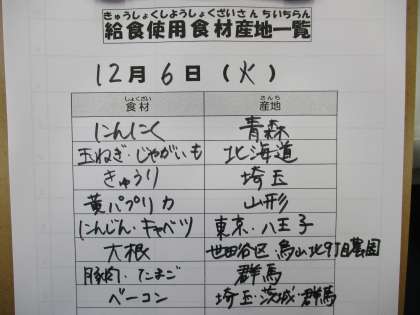 きゅうしょくしようしょくざいさんちいちらん
給食使用食材産地一覧
12月 6日 (火)
しょくざい さんち
食材 産地
にんにく 青森
玉ねぎ・じゃがいも 北海道
きゅうり 埼玉
黄パプリカ 山形
にんじん・キャベツ 東京・八王子
大根 世田谷区・烏山北9丁目農園
豚肉・たまご 群馬
ベーコン 埼玉・茨城・群馬